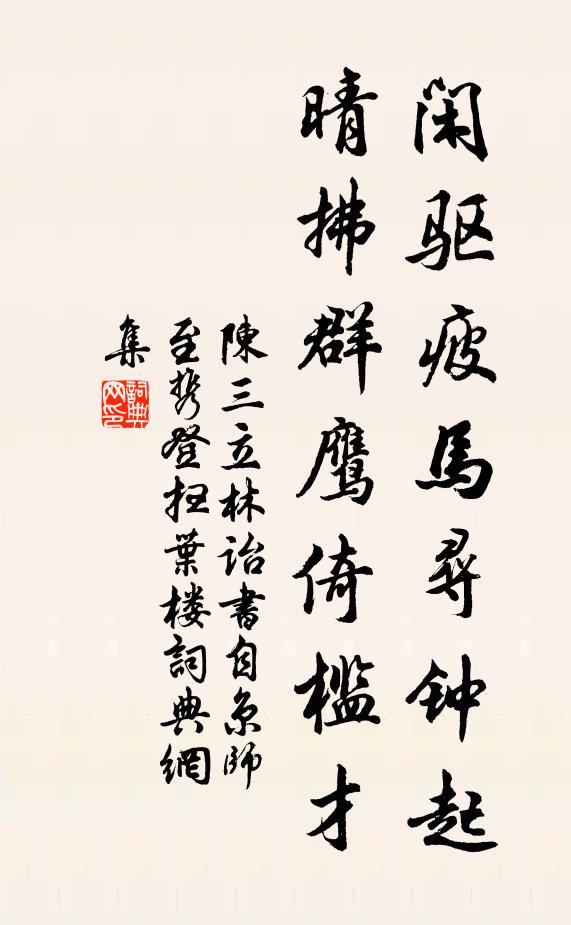 闲驱疲馬尋钟起
晴拂群鹰倚槛才
陳三立林詒書自京師
至携登扫葉楼詞典網
集
詞典
网印